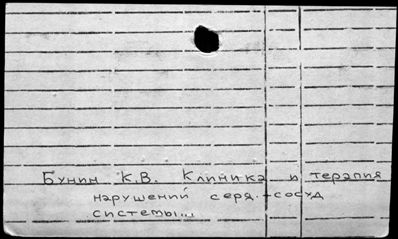 Бунин К.В. Клиника и терапия
нарушений серд.-сосуд
системы...